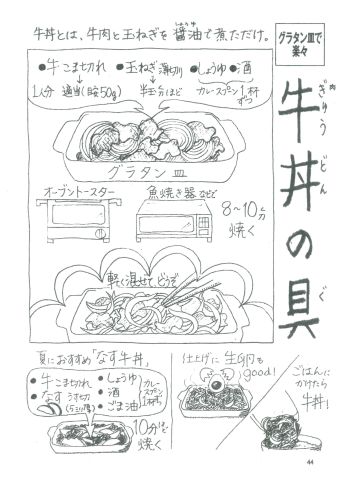 グラタン皿で
楽々
牛丼の具
ぎゅう
どん
ぐ
牛丼とは、牛肉と玉ねぎを醤油で煮ただけ。
しょうゆ
●牛こま切れ ●玉ねぎ薄切り ●しょうゆ ●酒
1人分 適当(目安50g) 半玉分ほど カレースプーン1杯ずつ
グラタン皿
オーブントースター 魚焼き器などで
8〜10分
焼く
軽く混ぜて、どうぞ
夏におすすめ「なす牛丼」
●牛こま切れ
●なす うす切り
(5ミリ厚)
●しょうゆ
●酒
●ごま油
カレー
スプーン
1杯ずつ
10分ほど
焼く
仕上げに生卵も
good!
ごはんに
かけたら
牛丼!
44